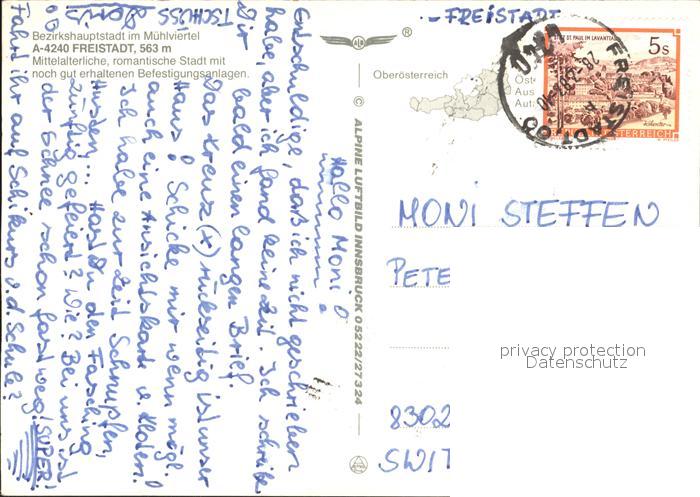 - FREISTADT
Bezirkshauptstadt im Mühlviertel
A-4240 FREISTADT, 563 m
Mittelalterliche, romantische Stadt mit
noch gut erhaltenen Befestigungsanlagen.
®
Oberösterreich
Öste
Aus
Aut
© ALPINE LUFTBILD INNSBRUCK 0 52 22/27 3 24
STIFT ST. PAUL IM LAVANTTAL
5 s
ÖSTERREICH
FREISTADT OÖ
4240
MONI STEFFEN
PETE
8302
SWIT
privacy protection
Datenschutz
Hallo Moni!
Entschuldige, daß ich nicht geschrieben
habe, aber ich fand keine Zeit. Ich schreibe
Dir bald einen langen Brief.
Das Kreuz (x) rückseitig ist unser
Haus! Schicke mir wenn mögl.
auch eine Ansichtskarte v. Kloten!
Ich habe zur Zeit Schnupfen,
Husten... Hast Du den Fasching
zünftig gefeiert? Wie? Bei uns ist
der Schnee schon fast weg! SUPER!
Fahrt ihr auf Schikurs v.d. Schule?
TSCHÜSS